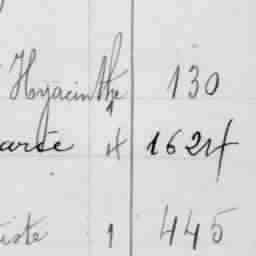 Hyacinthe 1 130
arie 4 1624
iste 1 445